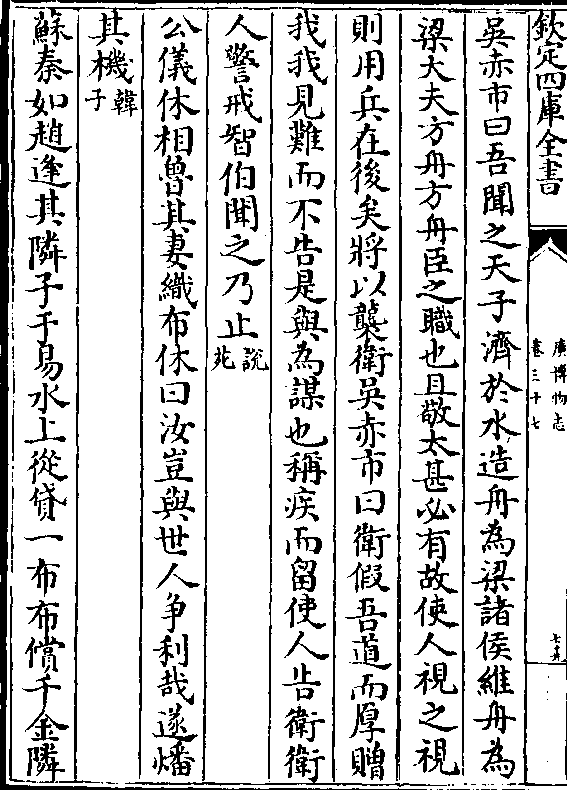 欽定四庫全書
廣博物志
卷三十七
吳赤市曰吾聞之天子濟於水造舟為梁諸侯維舟為
梁大夫方舟方舟臣之職也且敬太甚必有故使人視之視
則用兵在後矣將以襲衛吳赤市曰衛假吾道而厚贈
我我見難而不告是與為謀也稱疾而留使人告衛衛
人警戒智伯聞之乃止說苑
公儀休相魯其妻織布休曰汝豈與世人爭利哉遂燔
其機韓子
蘇秦如趙逢其隣子于易水上從貸一布布償千金隣